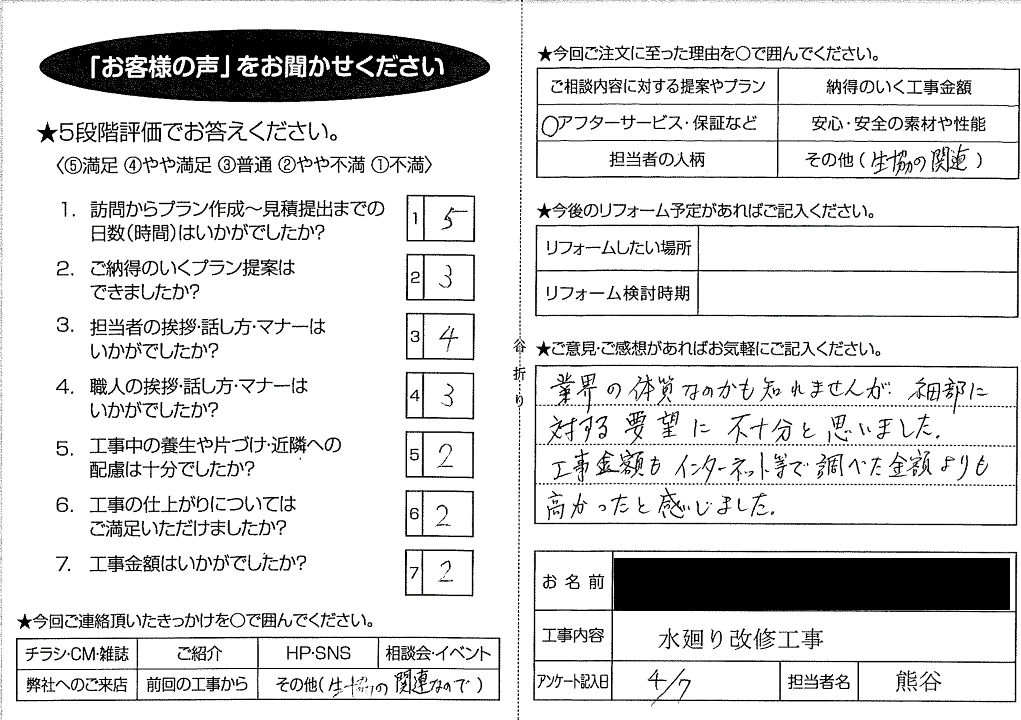 「お客様の声」をお聞かせください
★5段階評価でお答えください。
〈⑤満足 ④やや満足 ③普通 ②やや不満 ①不満〉
1. 訪問からプラン作成～見積提出までの
日数(時間)はいかがでしたか?
1 5
2. ご納得のいくプラン提案は
できましたか?
2 3
3. 担当者の挨拶・話し方・マナーは
いかがでしたか?
3 4
4. 職人の挨拶・話し方・マナーは
いかがでしたか?
4 3
5. 工事中の養生や片づけ・近隣への
配慮は十分でしたか?
5 2
6. 工事の仕上がりについては
ご満足いただけましたか?
6 2
7. 工事金額はいかがでしたか?
7 2
★今回ご連絡頂いたきっかけを○で囲んでください。
チラシ・CM・雑誌 ご紹介 HP・SNS 相談会・イベント
弊社へのご来店 前回の工事から その他(生協の関連なので)
谷折り
★今回ご注文に至った理由を○で囲んでください。
ご相談内容に対する提案やプラン 納得のいく工事金額
○アフターサービス・保証など 安心・安全の素材や性能
担当者の人柄 その他(生協の関連)
★今後のリフォーム予定があればご記入ください。
リフォームしたい場所
リフォーム検討時期
★ご意見・ご感想があればお気軽にご記入ください。
業界の体質なのかも知れませんが、細部に
対する要望に不十分と思いました。
工事金額もインターネット等で調べた金額よりも
高かったと感じました。
お名前
工事内容 水廻り改修工事
アンケート記入日 4/7 担当者名 熊谷